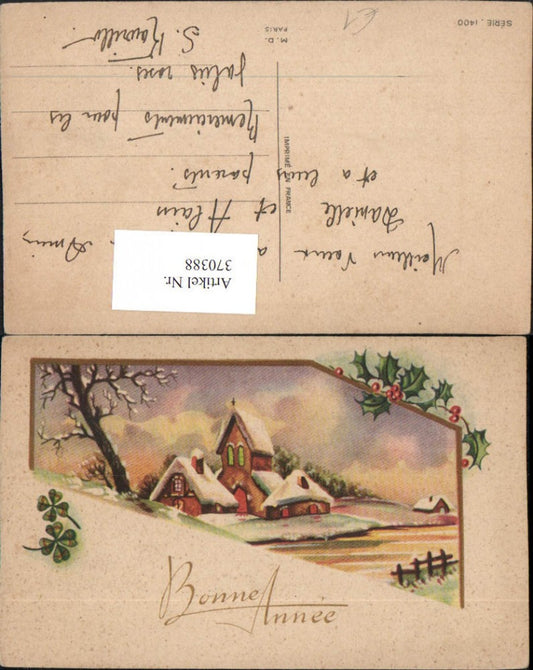 SÉRIE. 1400
M. D.
PARIS
IMPRIMÉ EN FRANCE
Meilleurs Vœux a Amis
Danielle et Alain
et a leurs parents.
Remerciements pour les
jolies roses.
S.
Artikel Nr.
370388
Bonne
Année